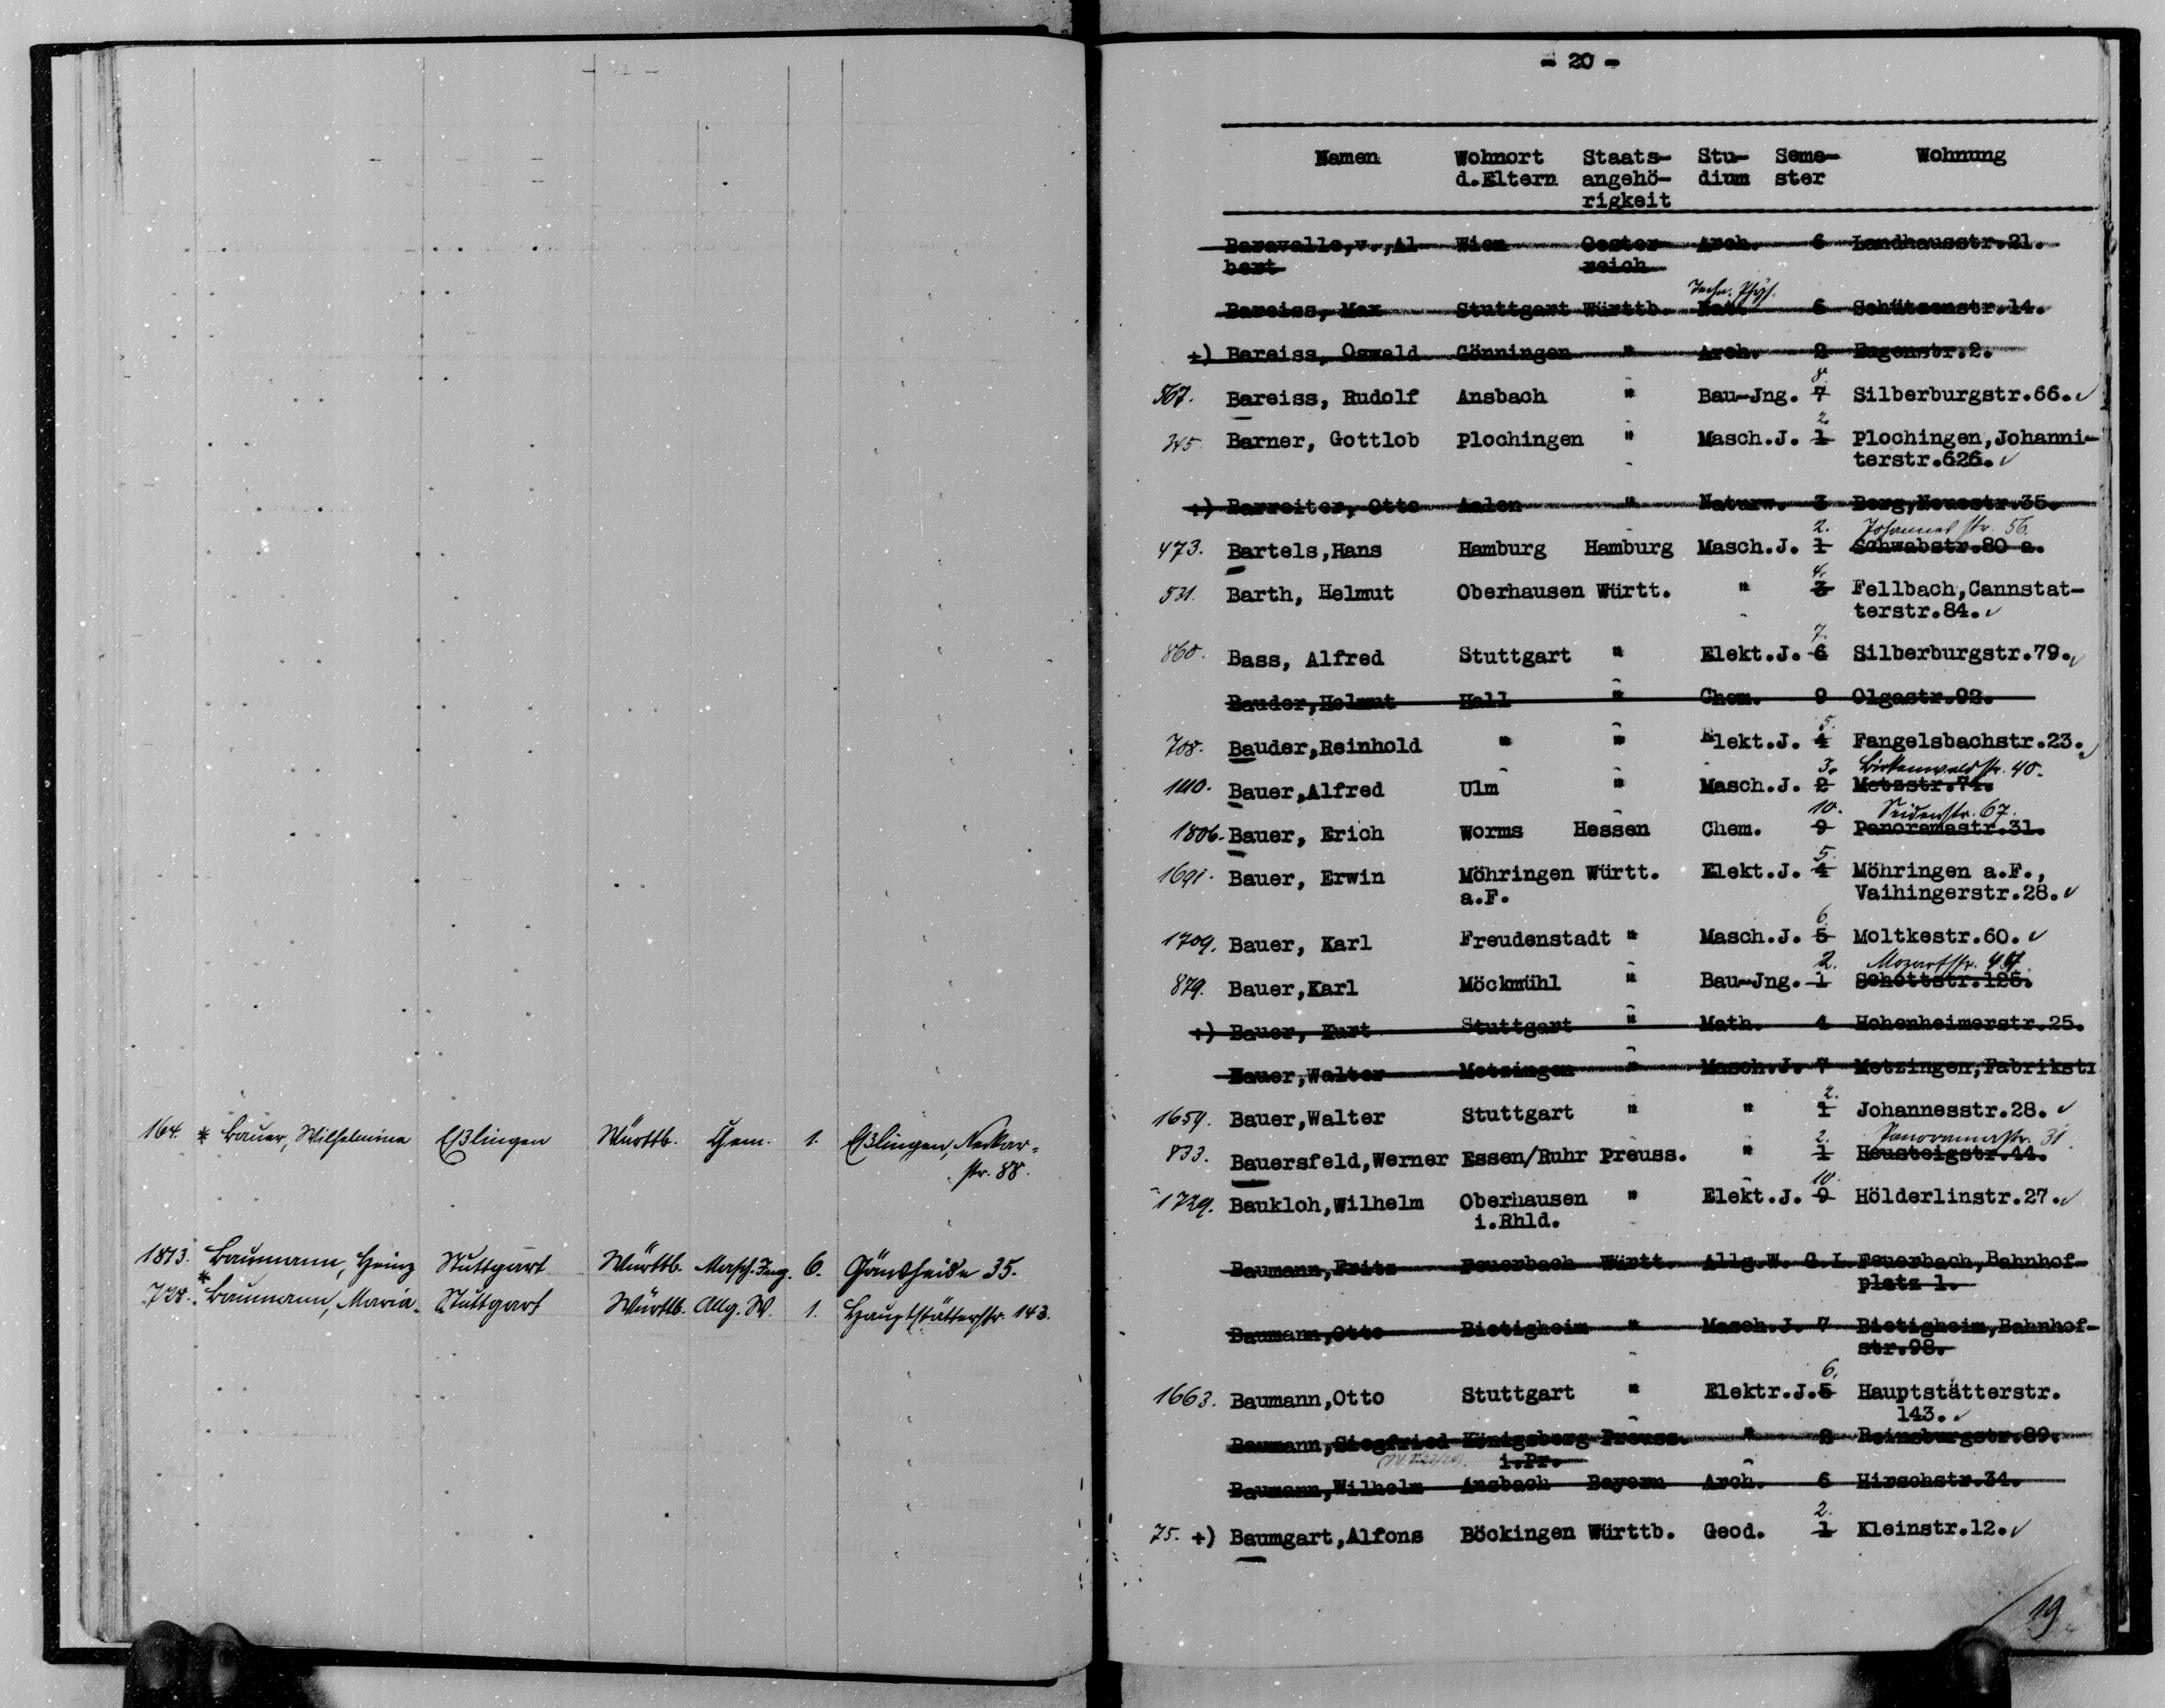 164. * Bauer, Wilhelmine Eßlingen Württb. Chem. 1. Eßlingen, Neckar=
str. 88.
1813. Baumann, Heinz Stuttgart Württb. Masch. Ing. 6. Gänsheide 35.
728. * Baumann, Maria Stuttgart Württb. Allg. W. 1. Hauptstätterstr. 143.
- 20 -
Namen Wohnort Staats- Stu- Seme- Wohnung
d.Eltern angehö- dium ster
rigkeit
Baravalle,v.,Al Wien Oester Arch. 6 Landhausstr.21.
bert reich
Techn. Phys.
Bareiss, Max Stuttgart Württb. Mat. 6 Schützenstr.14.
+) Bareiss, Oswald Gönningen " Arch. 2 Eugenstr.2.
8.
567. Bareiss, Rudolf Ansbach " Bau-Jng. 7 Silberburgstr.66.
2.
345. Barner, Gottlob Plochingen " Masch.J. 1 Plochingen,Johanni-
terstr.626.
+) Barreiter, Otto Aalen " Naturw. 3 Berg,Neuestr.35.
2. Johannesstr. 56.
473. Bartels,Hans Hamburg Hamburg Masch.J. 1 Schwabstr.80 a.
4.
531. Barth, Helmut Oberhausen Württ. " 3 Fellbach,Cannstat-
terstr.84.
7.
860. Bass, Alfred Stuttgart " Elekt.J. 6 Silberburgstr.79.
Bauder,Helmut Hall " Chem. 9 Olgastr.92.
5.
708. Bauder,Reinhold " " Elekt.J. 4 Fangelsbachstr.23.
3. Birkenwaldstr. 40.
1110. Bauer,Alfred Ulm " Masch.J. 2 Metzstr.74.
10. Seidenstr. 67.
1806. Bauer, Erich Worms Hessen Chem. 9 Panoramastr.31.
5.
1691. Bauer, Erwin Möhringen Württ. Elekt.J. 4 Möhringen a.F.,
a.F. Vaihingerstr.28.
6.
1709. Bauer, Karl Freudenstadt " Masch.J. 5 Moltkestr.60.
2. Mozartstr.
879. Bauer,Karl Möckmühl " Bau-Jng. 1 Schottstr.126.
+) Bauer, Kurt Stuttgart " Math. 4 Hohenheimerstr.25.
Bauer,Walter Metzingen " Masch.J. 7 Metzingen,Fabrikstr
2.
1659. Bauer,Walter Stuttgart " " 1 Johannesstr.28.
2. Panoramastr. 31.
833. Bauersfeld,Werner Essen/Ruhr Preuss. " 1 Heusteigstr.44.
10.
1729. Baukloh,Wilhelm Oberhausen " Elekt.J. 9 Hölderlinstr.27.
i.Rhld.
Baumann,Fritz Feuerbach Württ. Allg.W. G.I. Feuerbach,Bahnhof-
platz 1.
Baumann,Otto Bietigheim " Masch.J. 7 Bietigheim,Bahnhof-
str.98.
6.
1663. Baumann,Otto Stuttgart " Elektr.J.5 Hauptstätterstr.
143.
Baumann,Siegfried Königsberg Preuss. " 8 Reinsburgstr.89.
i.Pr.
Baumann,Wilhelm Ansbach Bayern Arch. 6 Hirschstr.34.
2.
75. +) Baumgart,Alfons Böckingen Württb. Geod. 1 Kleinstr.12.
19